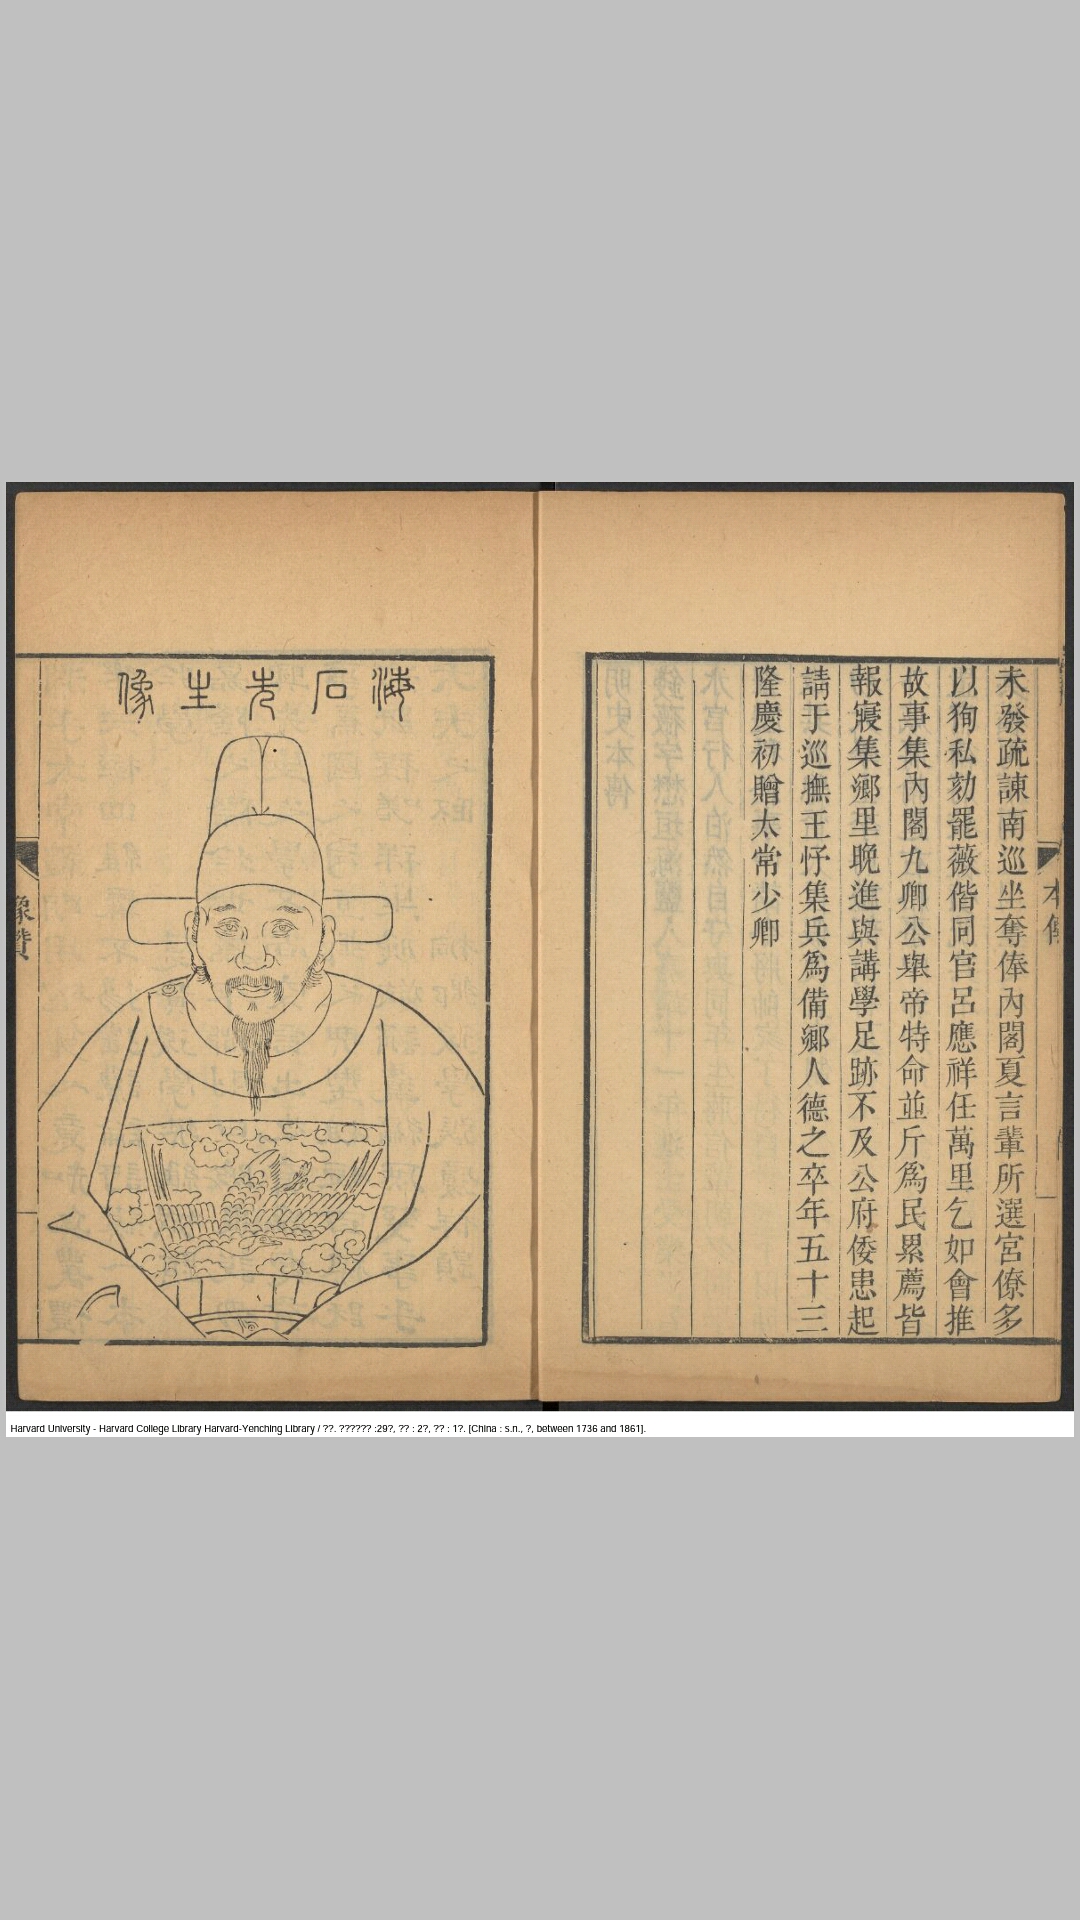 未發疏諫南巡坐奪俸內閣夏言輩所選宮僚多
以狥私劾罷薇偕同官呂應祥任萬里乞如會推
故事集內閣九卿公舉帝特命並斤爲民累薦皆
報寢集鄉里晚進與講學足跡不及公府倭患起
請于巡撫王忬集兵爲備鄉人德之卒年五十三
隆慶初贈太常少卿
海石先生像
像贊
Harvard University - Harvard College Library Harvard-Yenching Library / ??. ?????? :29?, ?? : 2?, ?? : 1?. [China : s.n., ?, between 1736 and 1861].